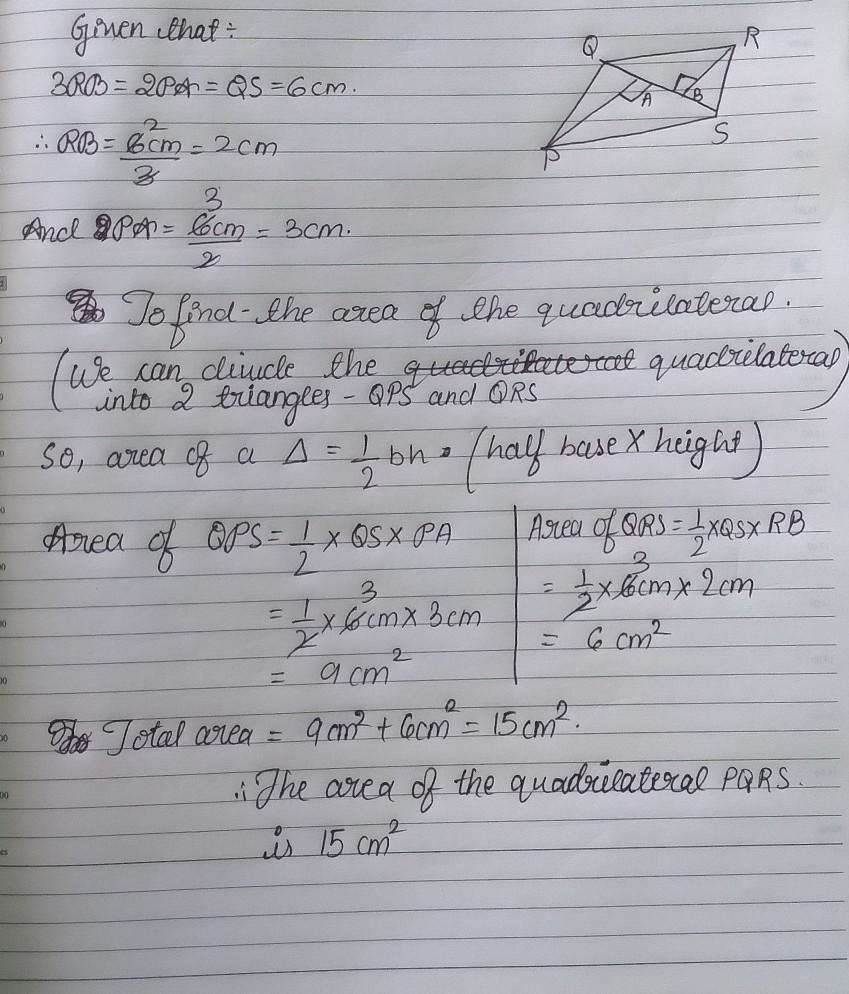 Given that ÷
Q
R
3RB = 2PA = QS = 6cm.
A
B
∴ RB = 6cm/3 = 2cm
2
S
P
3
And PA = 6cm/2 = 3cm.
To find - the area of the quadrilateral.
(We can divide the quadrilateral quadrilateral)
into 2 triangles - QPS and QRS
So, area of a Δ = 1/2 bh. (half base X height)
Area of QPS = 1/2 × QS × PA
3
= 1/2 × 6cm × 3cm
= 9cm²
Area of QRS = 1/2 × QS × RB
3
= 1/2 × 6cm × 2cm
= 6 cm²
Total area = 9cm² + 6cm² = 15cm².
∴ The area of the quadrilateral PQRS.
is 15 cm²